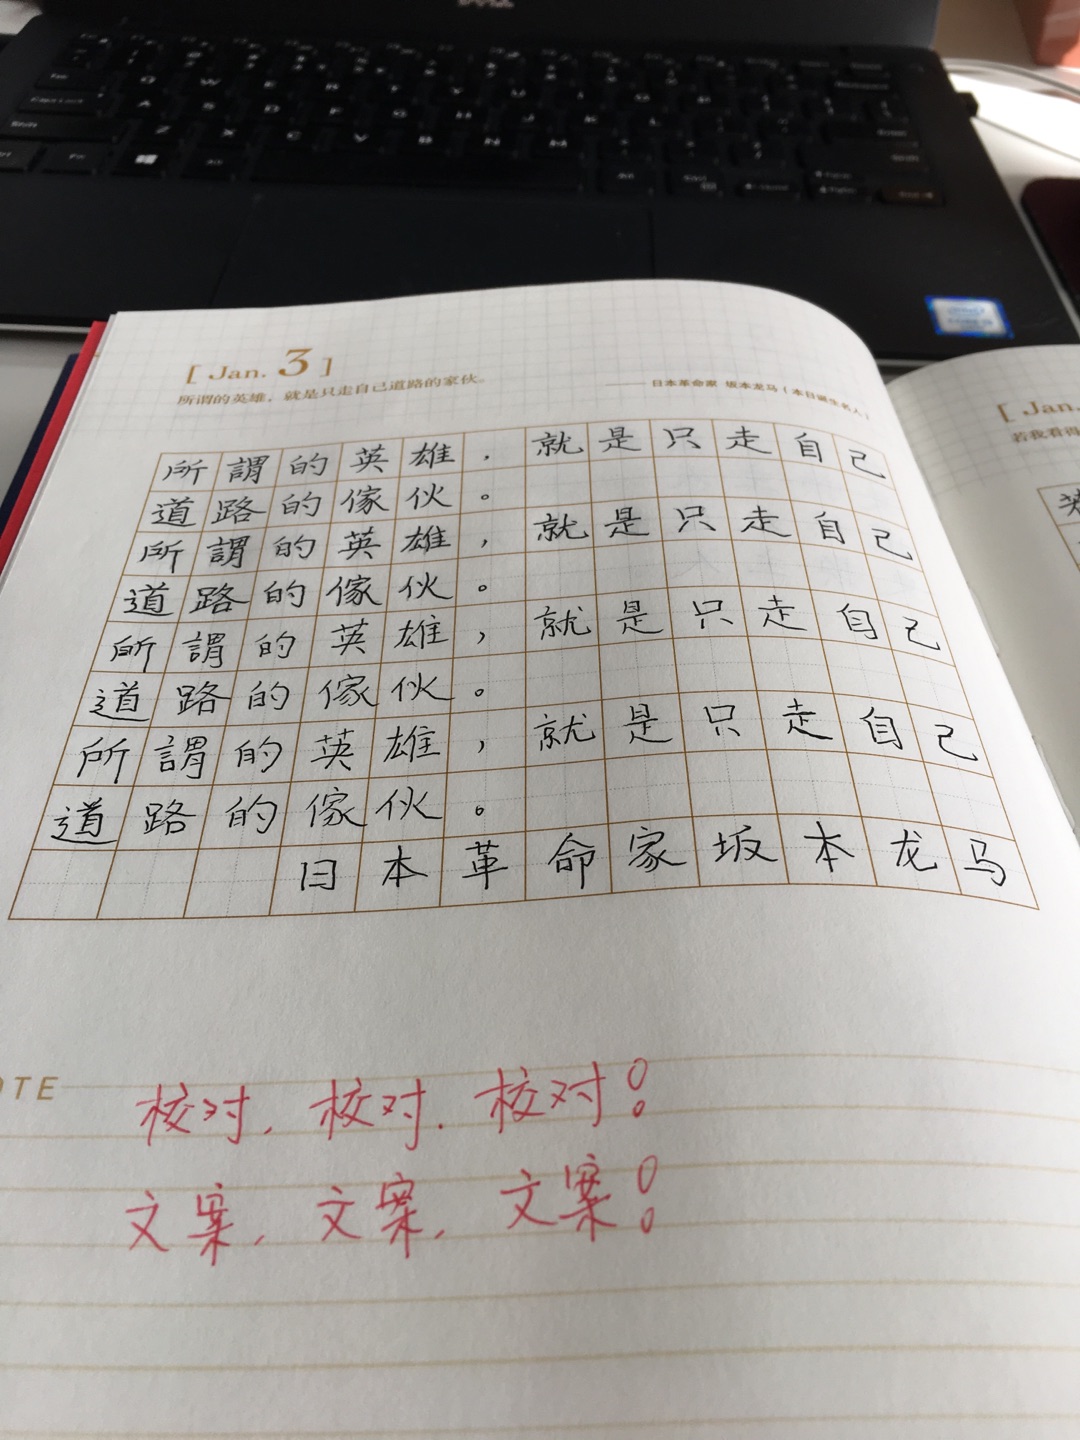 [ Jan. 3 ]
所谓的英雄，就是只走自己道路的家伙。
——日本革命家 坂本龙马（本日诞生名人）
所謂的英雄，就是只走自己
道路的傢伙。
所謂的英雄，就是只走自己
道路的傢伙。
所謂的英雄，就是只走自己
道路的傢伙。
所謂的英雄，就是只走自己
道路的傢伙。
日本革命家坂本龙马
OTE
校对，校对，校对！
文案，文案，文案！
[ Jan.
若我看得